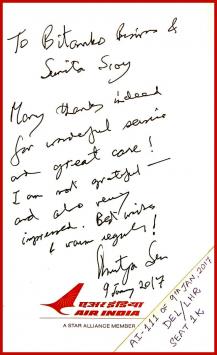 To Bitanko Biswas &
Sunita Sroy
Many thanks indeed
for wonderful service
and great care!
I am not grateful —
and also very
impressed. Best wishes
& warm regards!
9 Jany 2017
एअर इंडिया
AIR INDIA
A STAR ALLIANCE MEMBER
AI-111 of 9th JAN. 2017
DEL/LHR
SEAT 1K